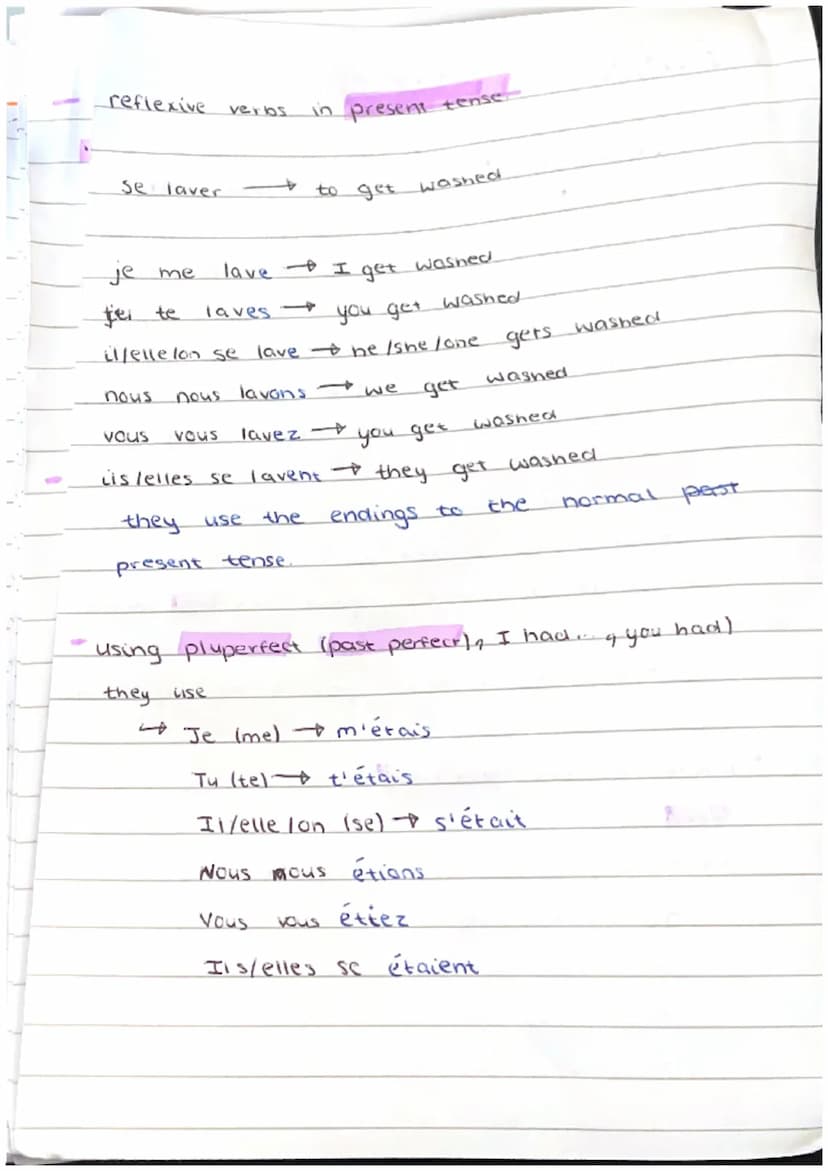 - reflexive verbs in present tense
se laver → to get washed
je me lave → I get washed
te laves → you get washed
il/elle/on se lave → he/she/one gets washed
nous nous lavons → we get washed
vous vous lavez → you get washed
- ils/elles se lavent → they get washed
they use the endings to the normal past
present tense.
- using pluperfect (past perfect), I had... , you had)
they use
↪ Je (me) → m'étais
Tu (te) → t'étais
Il/elle/on (se) → s'était
Nous nous étions
Vous vous étiez
Ils/elles se étaient